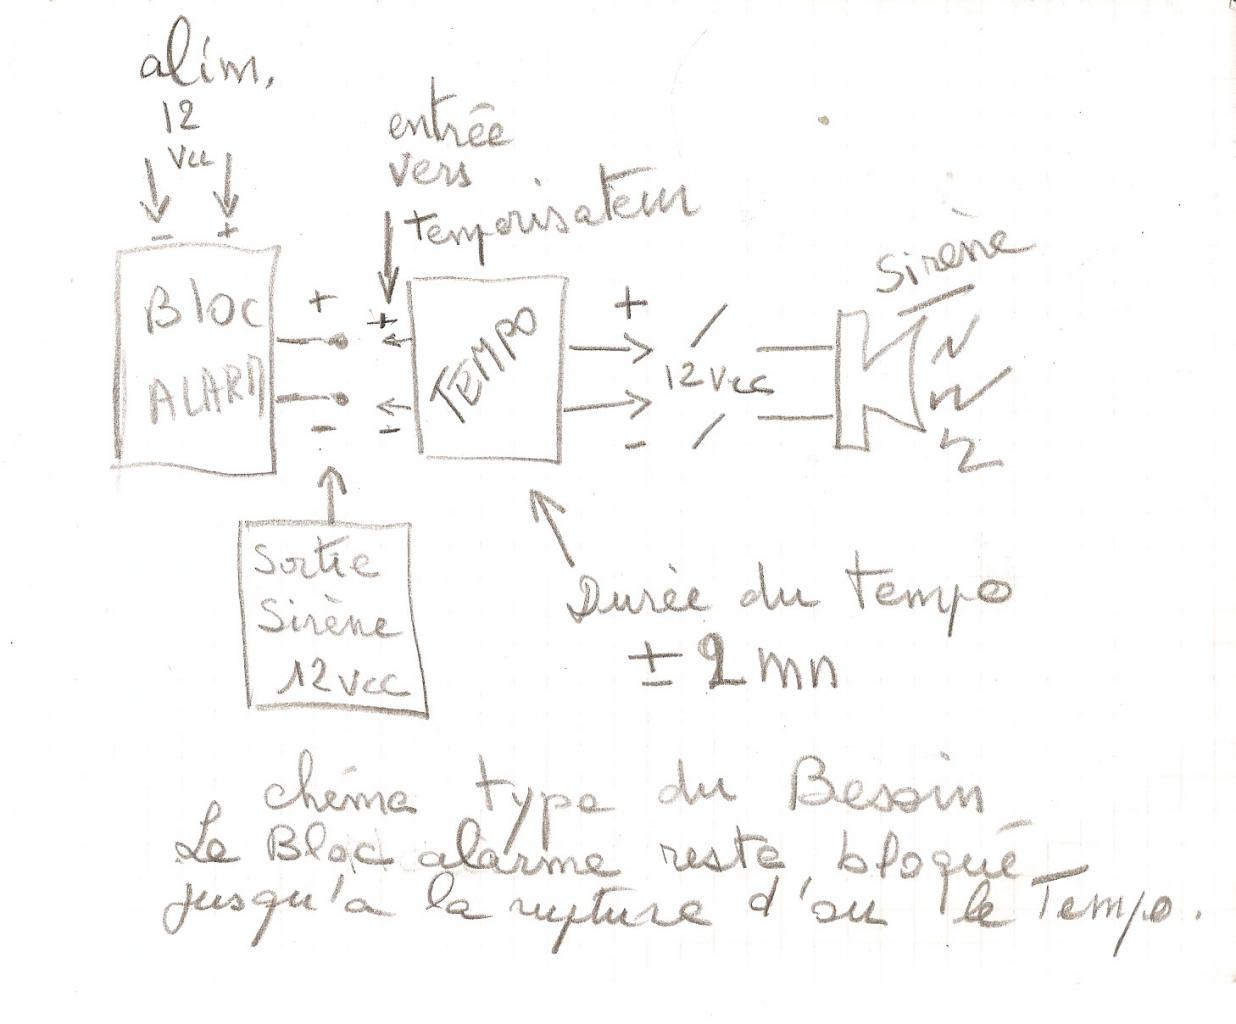 alim.
12
Vcc
- +
entrée
vers
temporisateur
Sirène
Bloc
ALARM
+
-
+
-
TEMPO
+
12 Vcc
-
Sortie
Sirène
12 Vcc
Durée du tempo
± 2 mn
chéma type du Besoin
Le Bloc alarme reste bloqué
jusqu'a la rupture d'ou le Tempo.